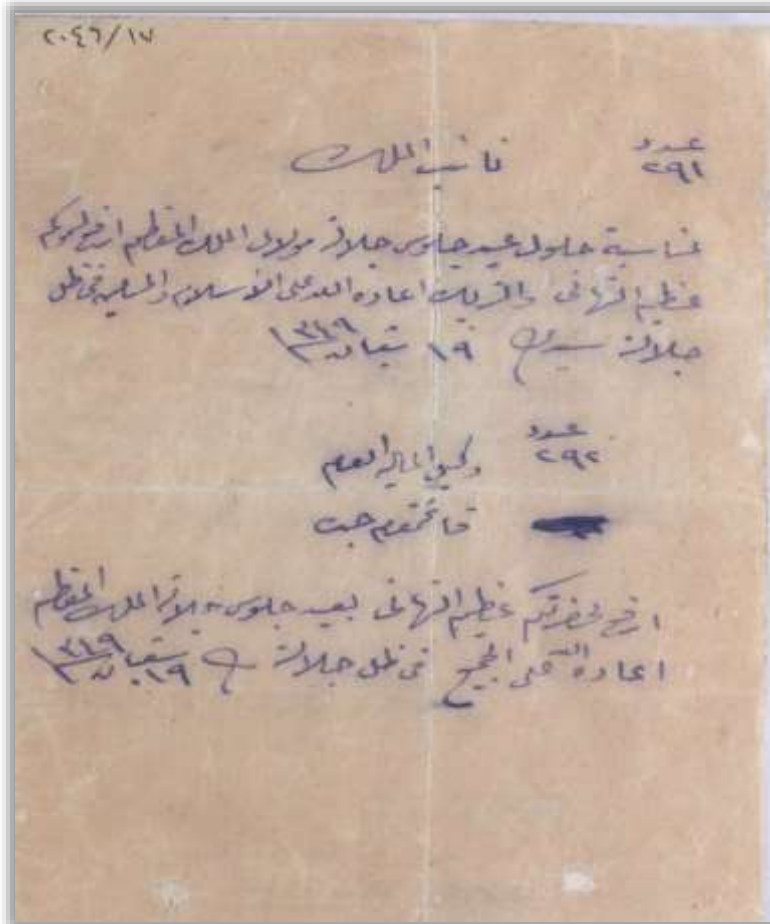 ٢٠٤٦/١٧
عدد ٢٩١ نائب الملك
بمناسبة حلول عيد جلوس جلالة مولاي الملك المعظم ارفع لسموكم
عظيم التهاني والتبريك اعاده الله على الاسلام والمسلمين في ظل
جلالة ١٩ شعبان ١٣٤٩
عدد ٢٩٢ وكيل المالية العام
قائمقام جدة
ارفع لحضرتكم عظيم التهاني بعيد جلوس جلالة الملك المعظم
اعاده الله على الجميع في ظل جلالته ١٩ شعبان ١٣٤٩